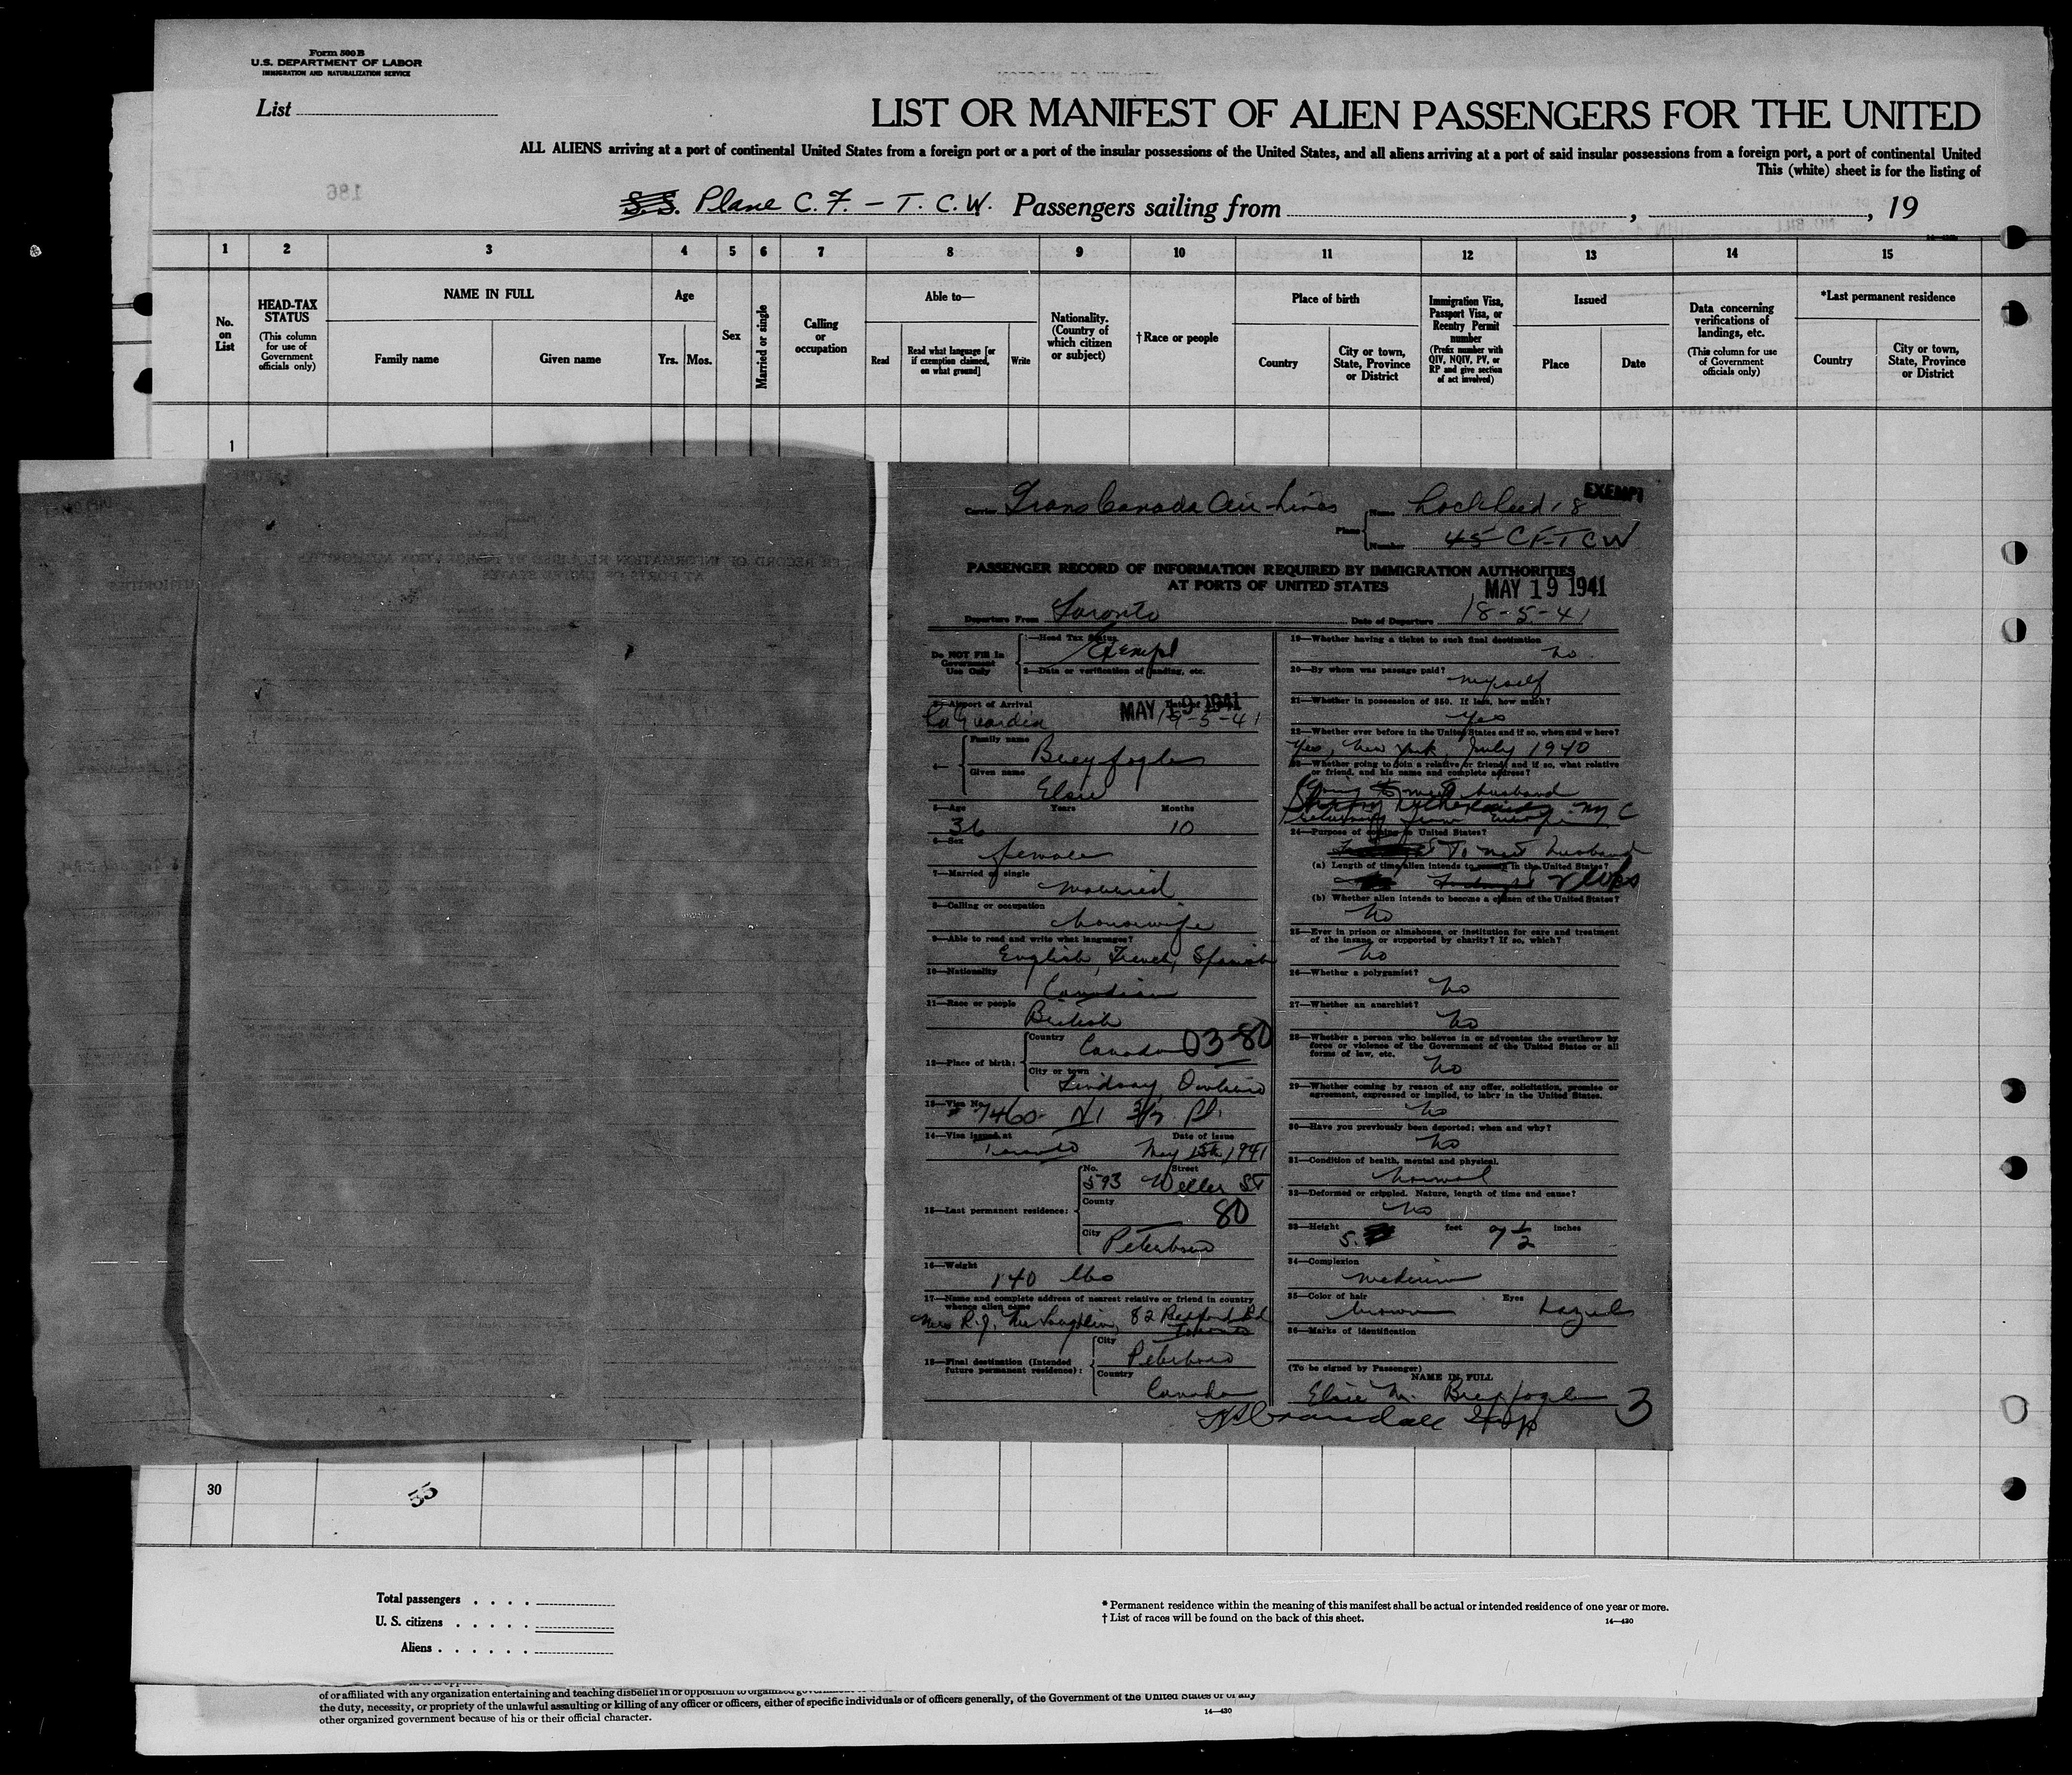 Form 500 B
U.S. DEPARTMENT OF LABOR
IMMIGRATION AND NATURALIZATION SERVICE
List
LIST OR MANIFEST OF ALIEN PASSENGERS FOR THE UNITED
ALL ALIENS arriving at a port of continental United States from a foreign port or a port of the insular possessions of the United States, and all aliens arriving at a port of said insular possessions from a foreign port, a port of continental United
This (white) sheet is for the listing of
S.S. Plane C.F. – T.C.W. Passengers sailing from , , 19
1 2 3 4 5 6 7 8 9 10 11 12 13 14 15
No. on List
HEAD-TAX STATUS
(This column for use of Government officials only)
NAME IN FULL
Family name Given name
Age
Yrs. Mos.
Sex
Married or single
Calling or occupation
Able to—
Read
Read what language [or if exemption claimed, on what ground]
Write
Nationality. (Country of which citizen or subject)
† Race or people
Place of birth
Country
City or town, State, Province or District
Immigration Visa, Passport Visa, or Reentry Permit number
(Prefix number with QIV, NQIV, PV, or RP and give section of act involved)
Issued
Place Date
Data concerning verifications of landings, etc.
(This column for use of Government officials only)
*Last permanent residence
Country
City or town, State, Province or District
1
EXEMPT
Carrier Trans Canada Air Lines
Plane
Name Lockheed 18
Number 45 CF-TCW
PASSENGER RECORD OF INFORMATION REQUIRED BY IMMIGRATION AUTHORITIES
AT PORTS OF UNITED STATES
MAY 19 1941
Departure From Toronto Date of Departure 18-5-41
Do NOT Fill In Government Use Only
1—Head Tax Status
Exempt
2—Data or verification of landing, etc.
3—Airport of Arrival
La Guardia MAY 19 1941 19-5-41
4—
Family name
Breyfogle
Given name
Elsie
5—Age Years Months
36 10
6—Sex
female
7—Married or single
married
8—Calling or occupation
housewife
9—Able to read and write what languages?
English, French, Spanish
10—Nationality
Canadian
11—Race or people
British
12—Place of birth:
Country
Canada 03-80
City or town
Lindsay, Ontario
13—Visa No.
7460 N1 3/2 Pl.
14—Visa issued at Date of Issue
Toronto May 15th, 1941
15—Last permanent residence:
No. Street
593 Weller St
County
80
City
Peterboro
16—Weight
140 lbs
17—Name and complete address of nearest relative or friend in country whence alien came
Mrs R.J. McLaughlin, 82 Bedford Rd
Toronto
18—Final destination (Intended future permanent residence):
City
Peterboro
Country
Canada
19—Whether having a ticket to such final destination
No.
20—By whom was passage paid?
myself
21—Whether in possession of $50. If less, how much?
Yes
22—Whether ever before in the United States and if so, when and where?
Yes, New York, July 1940
23—Whether going to join a relative or friend, and if so, what relative or friend, and his name and complete address?
Going to meet husband
returning from Europe NYC
24—Purpose of coming to United States?
To meet husband
(a) Length of time alien intends to remain in the United States?
2 wks
(b) Whether alien intends to become a citizen of the United States?
No
25—Ever in prison or almshouse, or institution for care and treatment of the insane, or supported by charity? If so, which?
No
26—Whether a polygamist?
No
27—Whether an anarchist?
No
28—Whether a person who believes in or advocates the overthrow by force or violence of the Government of the United States or all forms of law, etc.
No
29—Whether coming by reason of any offer, solicitation, promise or agreement, expressed or implied, to labor in the United States.
No
30—Have you previously been deported; when and why?
No
31—Condition of health, mental and physical.
Normal
32—Deformed or crippled. Nature, length of time and cause?
No
33—Height 5 feet 7 1/2 inches
34—Complexion
medium
35—Color of hair Eyes
brown hazel
36—Marks of identification
(To be signed by Passenger)
NAME IN FULL
Elsie M. Breyfogle
3
30
55
Total passengers
U. S. citizens
Aliens
* Permanent residence within the meaning of this manifest shall be actual or intended residence of one year or more.
† List of races will be found on the back of this sheet.
14—430
of or affiliated with any organization entertaining and teaching disbelief in or opposition to organized
the duty, necessity, or propriety of the unlawful assaulting or killing of any officer or officers, either of specific individuals or of officers generally, of the Government of the United States or of any
other organized government because of his or their official character.
14—430